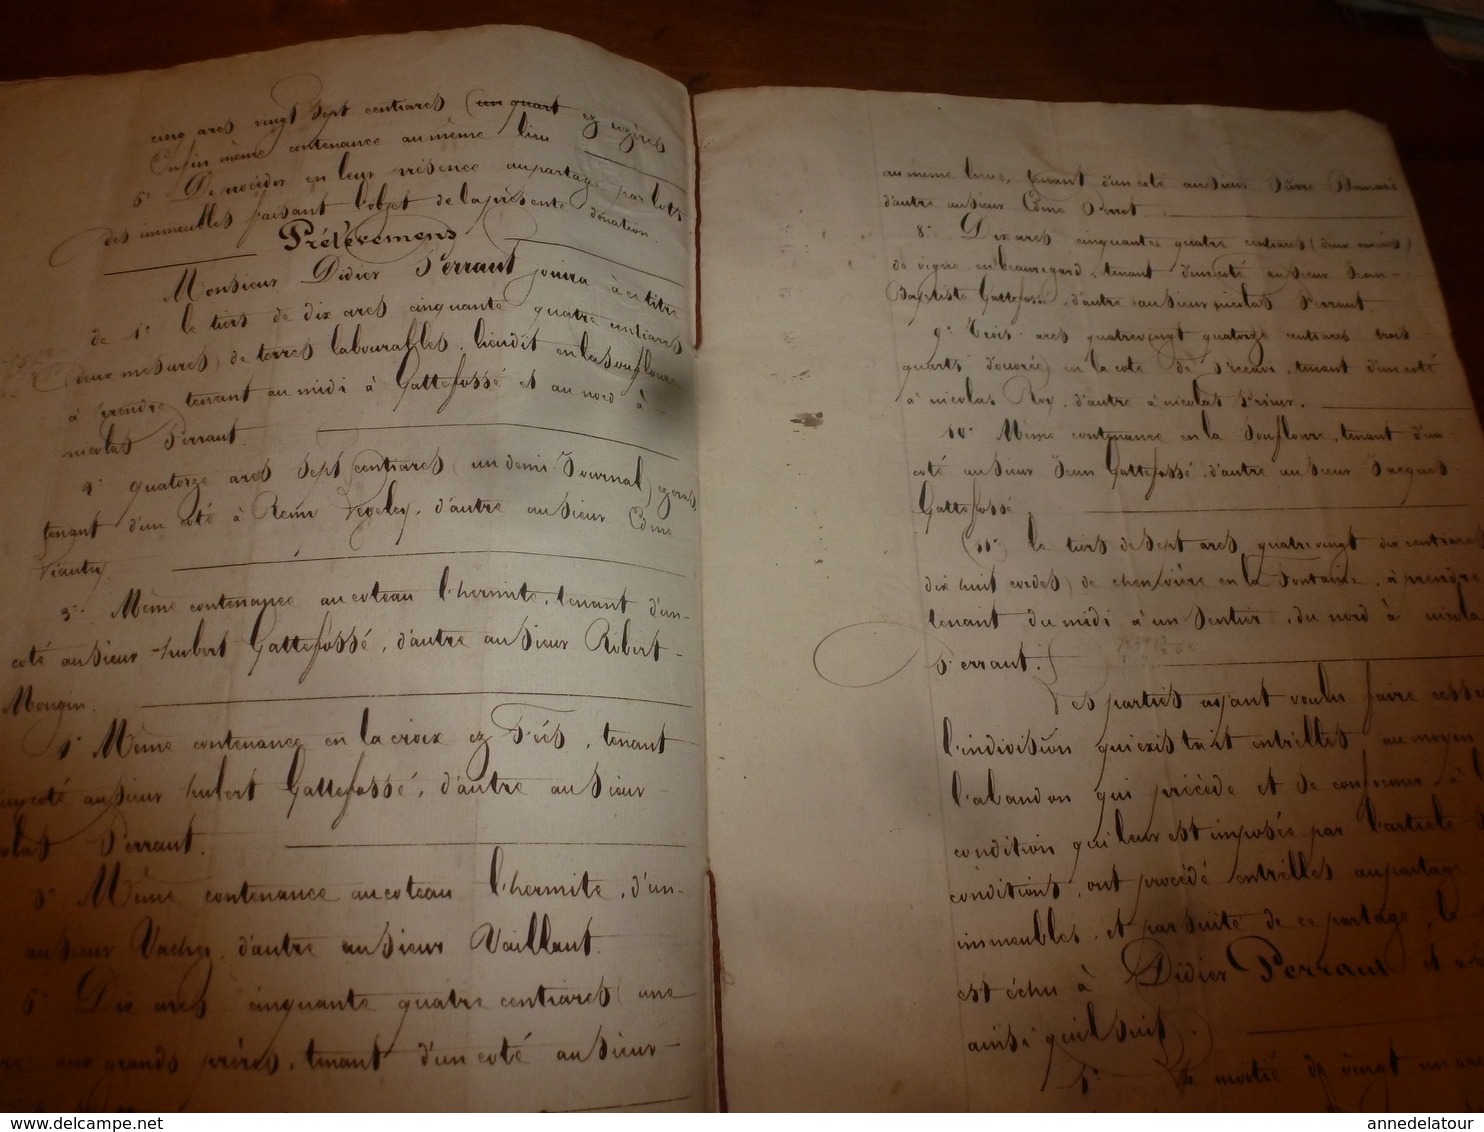 cinq ares vingt sept centiares (un quart ez ozères
Enfin même contenance au même lieu
5° De procéder en leur présence au partage par lots
des immeubles faisant l'objet de la présente donation.
Prélèvemens
Monsieur Didier Perraut jouira à ce titre
de 1° le tiers de dix ares cinquante quatre centiares
(deux mesures) de terres labourables, lieudit en la Soufloire
à prendre tenant au midi à Gattefossé et au nord à
nicolas Perraut.
2° quatorze ares sept centiares (un demi Journal) ez
tenant d'un coté à Remi, d'autre au Sieur Edme
3° Même contenance au coteau l'hermite, tenant d'un
coté au Sieur hubert Gattefossé, d'autre au Sieur Robert
Mongin.
4° Même contenance en la croix ez Fées, tenant
coté au Sieur hubert Gattefossé, d'autre au Sieur
Perraut.
5° Même contenance au coteau l'hermite, d'un
au Sieur Vacher, d'autre au Sieur Vaillant.
6° Dix ares cinquante quatre centiares (une
aux grands tenant d'un coté au Sieur
au même lieu, tenant d'un coté au Sieur
d'autre au Sieur Edme Perrot
8° Dix ares cinquante quatre centiares (deux
de vigne en beauregard, tenant d'un coté au Sieur Jean
Baptiste Gattefossé, d'autre au Sieur nicolas Perraut.
9° Trois ares quatrevingt quatorze centiares trois
quarts d'ouvrée) en la cote de tenant d'un coté
à nicolas Roy, d'autre à nicolas Prieur.
10° Même contenance en la Soufloire, tenant d'un
coté au Sieur Jean Gattefossé, d'autre au Sieur Jacques
Gattefossé.
(11° le tiers de Sept ares quatrevingt dix centiares
dix huit cordes) de chenevière en la Fontaine, à prendre
tenant du midi à un Sentier, du nord à nicolas
Perraut.
Les parties ayant voulu faire cesser
l'indivision qui existait entr'elles au moyen
l'abandon qui précède et se conformer à
condition qui leur est imposée par l'article
conditions, ont procédé entr'elles au partage
immeubles, et par suite de ce partage, le
est échu à Didier Perraut et a
ainsi qu'il suit).
1° La moitié de vingt un ares
annedelatour